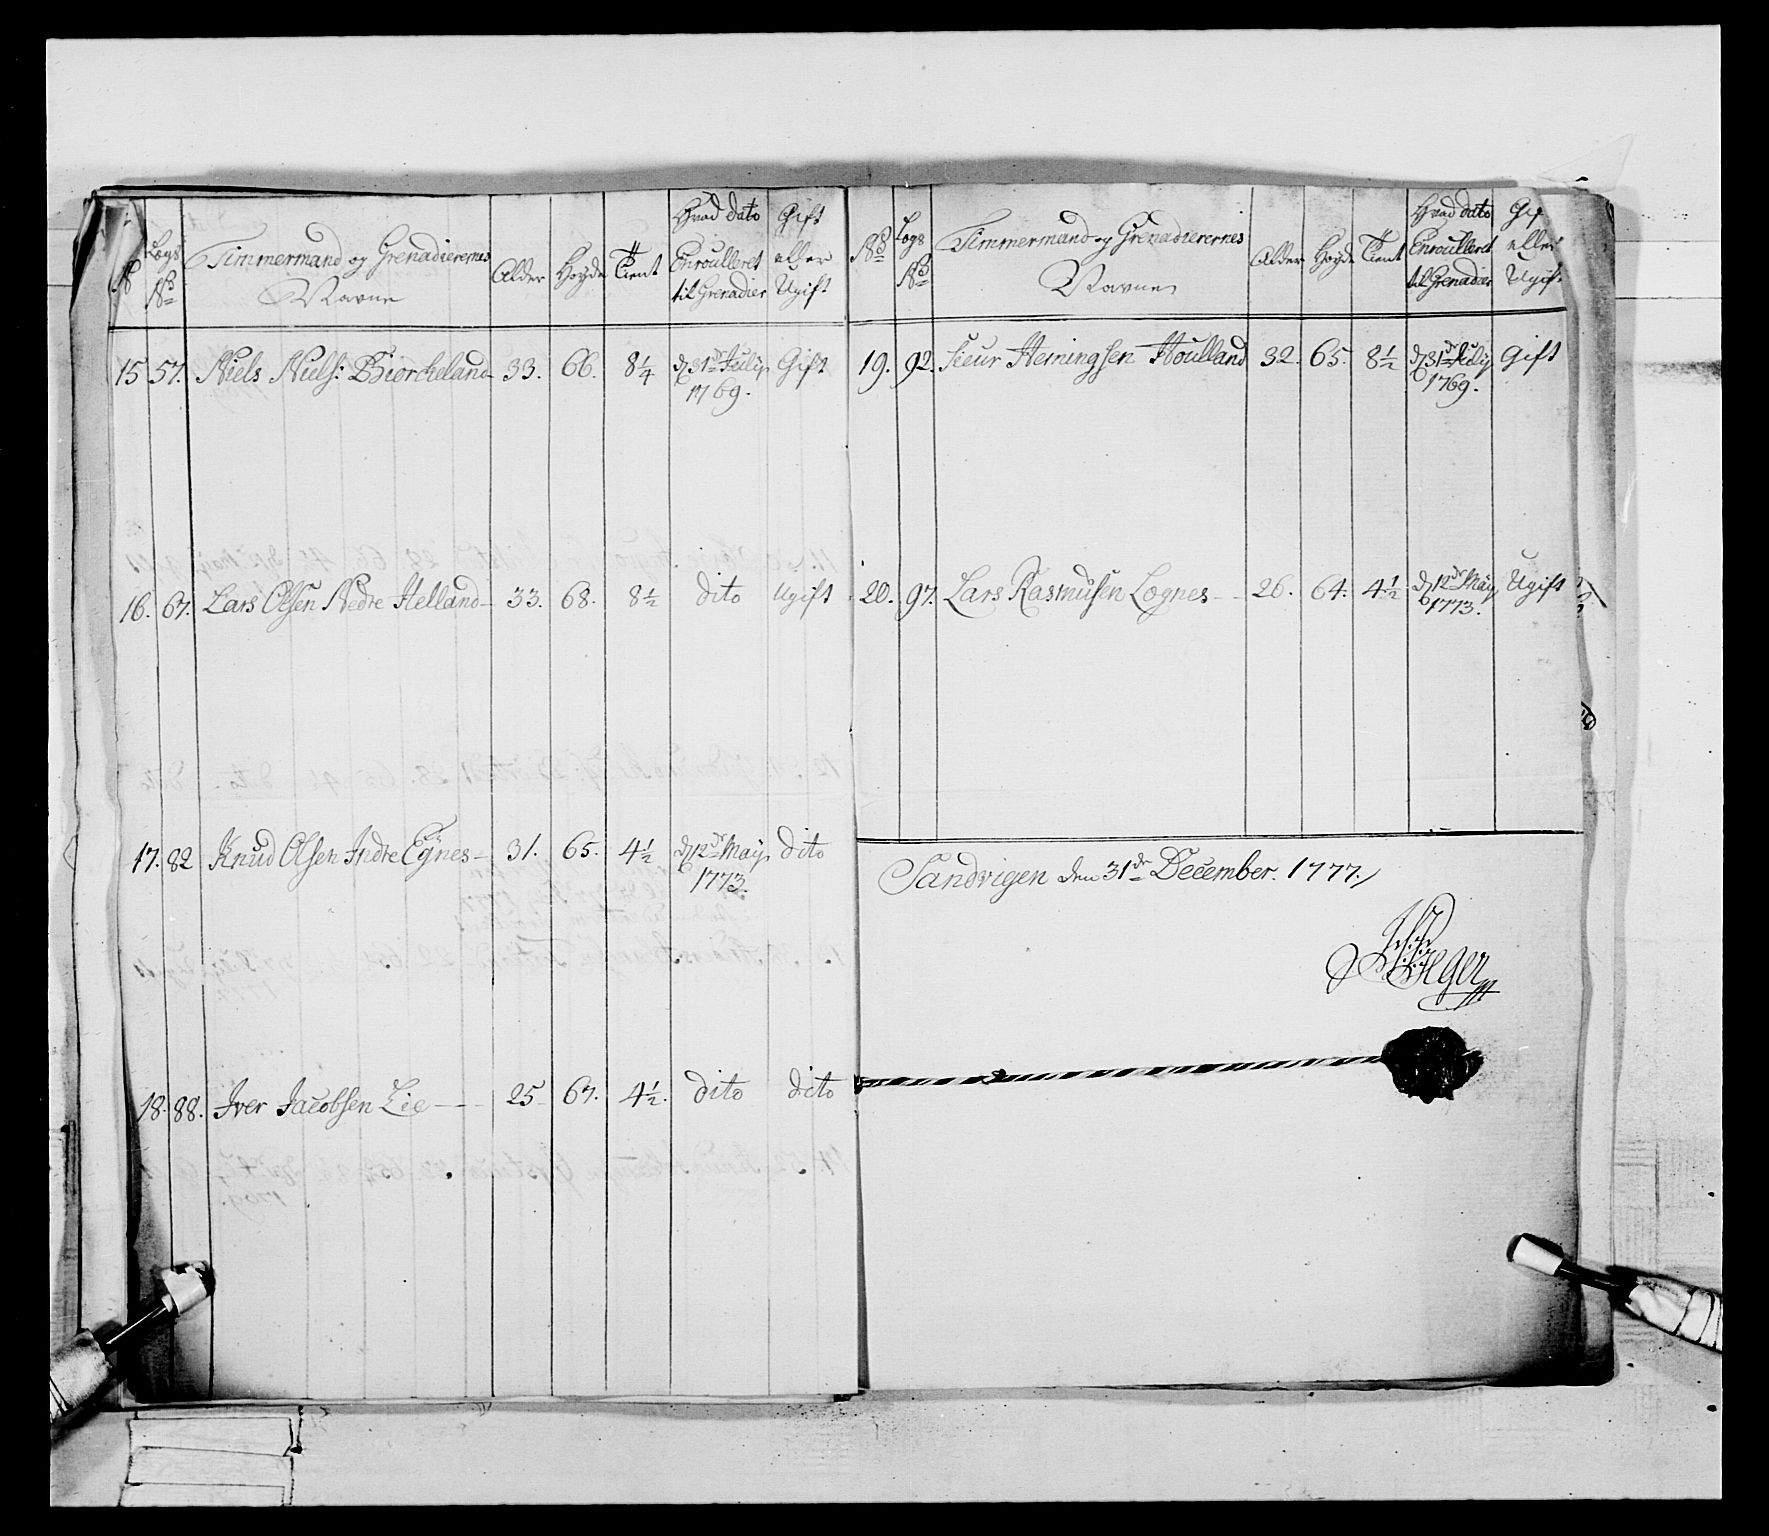 No
Logs No
Timmermand og Grenadierernes Navne
Alder
Høyde
Tient
Hvad dato Enroulleret til Grenadier
Gift eller Ugift
15 57. Niels Niels: Biorcheland 33. 66. 8¼ d 31te Julij 1769. Gift
16. 67. Lars Olsen Nedre Helland 33. 68. 8½ dito Ugift
17. 82 Knud Olsen Indre Egnes 31. 65. 4½ d 12te Maij 1773. dito
18. 88. Iver Jacobsen Lie 25 67. 4½. dito dito
No
Logs No
Timmermand og Grenadierernes Navne
Alder
Høyde
Tient
Hvad dato Enroulleret til Grenadier
Gif eller Ugift
19. 92. Sieur Hemingsen Houlland 32. 65. 8½ d 31te Julij 1769. Gift
20. 97. Lars Rasmusen Løgnes 26. 64. 4½ d 12te Maij 1773. Ugift
Sandvigen den 31te December. 1777.